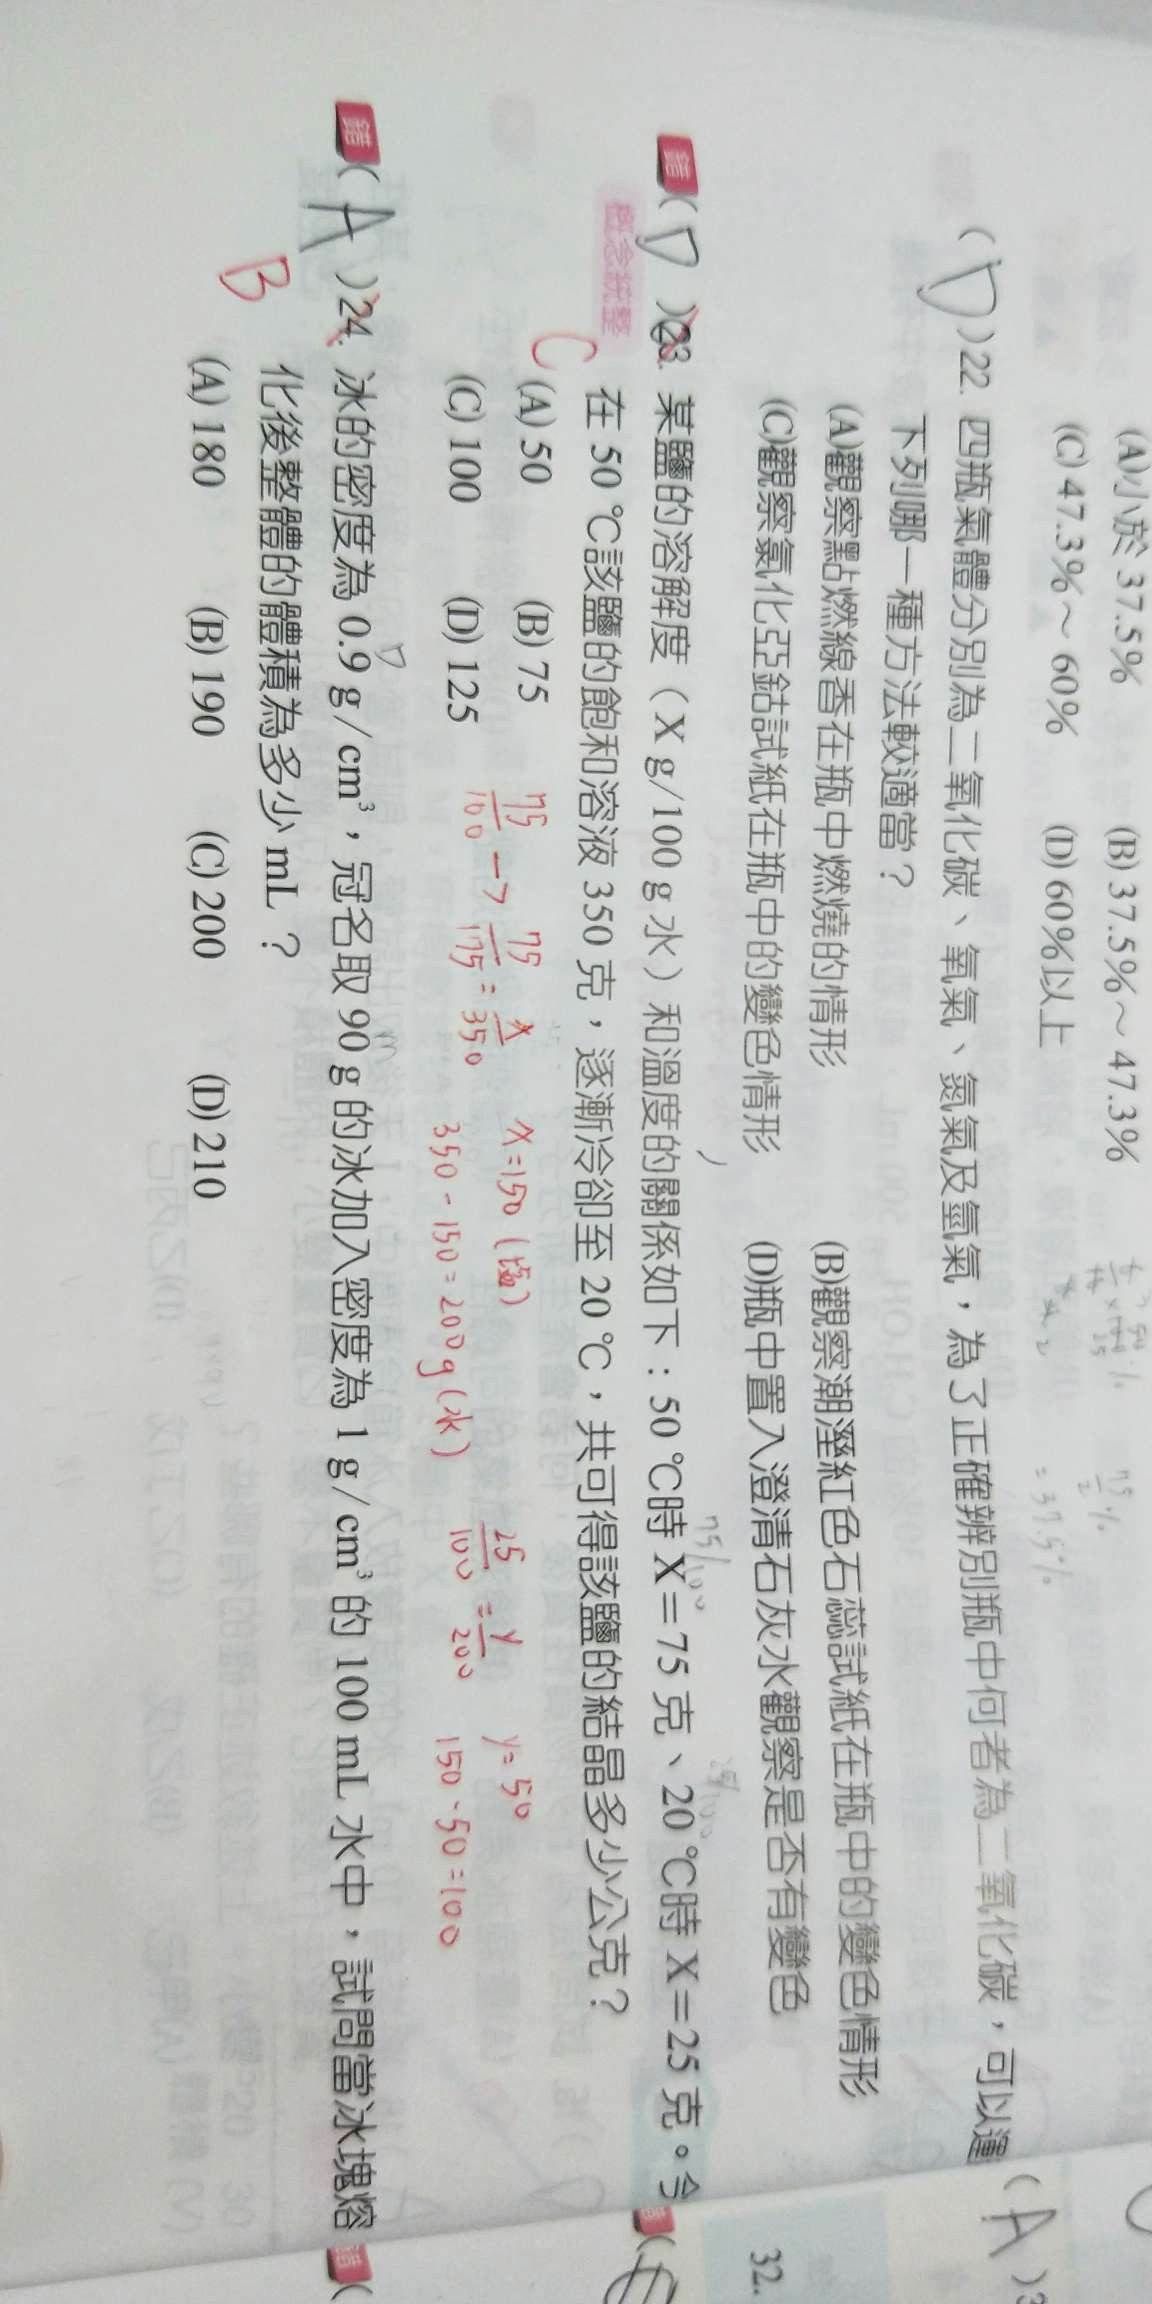 (A)小於 37.5% (B) 37.5%～47.3%
(C) 47.3%～60% (D) 60%以上
= 37.5%
(D)22. 四瓶氣體分別為二氧化碳、氧氣、氮氣及氫氣，為了正確辨別瓶中何者為二氧化碳，可以運
下列哪一種方法較適當？
(A)觀察點燃線香在瓶中燃燒的情形 (B)觀察潮溼紅色石蕊試紙在瓶中的變色情形
(C)觀察氯化亞鈷試紙在瓶中的變色情形 (D)瓶中置入澄清石灰水觀察是否有變色
75/100 25/100
錯 (D)23. 某鹽的溶解度（X g/100 g 水）和溫度的關係如下：50 ℃時 X＝75 克、20 ℃時 X＝25 克。今
概念統整 在 50 ℃該鹽的飽和溶液 350 克，逐漸冷卻至 20 ℃，共可得該鹽的結晶多少公克？
C
(A) 50 (B) 75
(C) 100 (D) 125
75/100 → 75/175 = x/350 x=150 (鹽) 25/100 = y/200 y=50
350-150=200g(水) 150-50=100
D m
錯 (A)24. 冰的密度為 0.9 g/cm³，冠名取 90 g 的冰加入密度為 1 g/cm³ 的 100 mL 水中，試問當冰塊熔
B 化後整體的體積為多少 mL？
(A) 180 (B) 190 (C) 200 (D) 210
(A)
32.